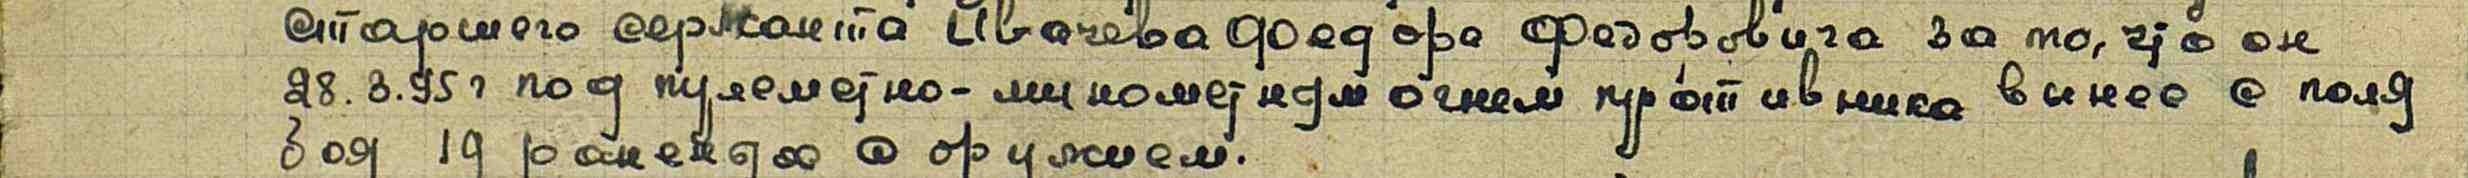 старшего сержанта Ивачева Федора Федоровича за то, что он
28.3.45 г под пулеметно-минометным огнем противника вынес с поля
боя 19 раненых с оружием.